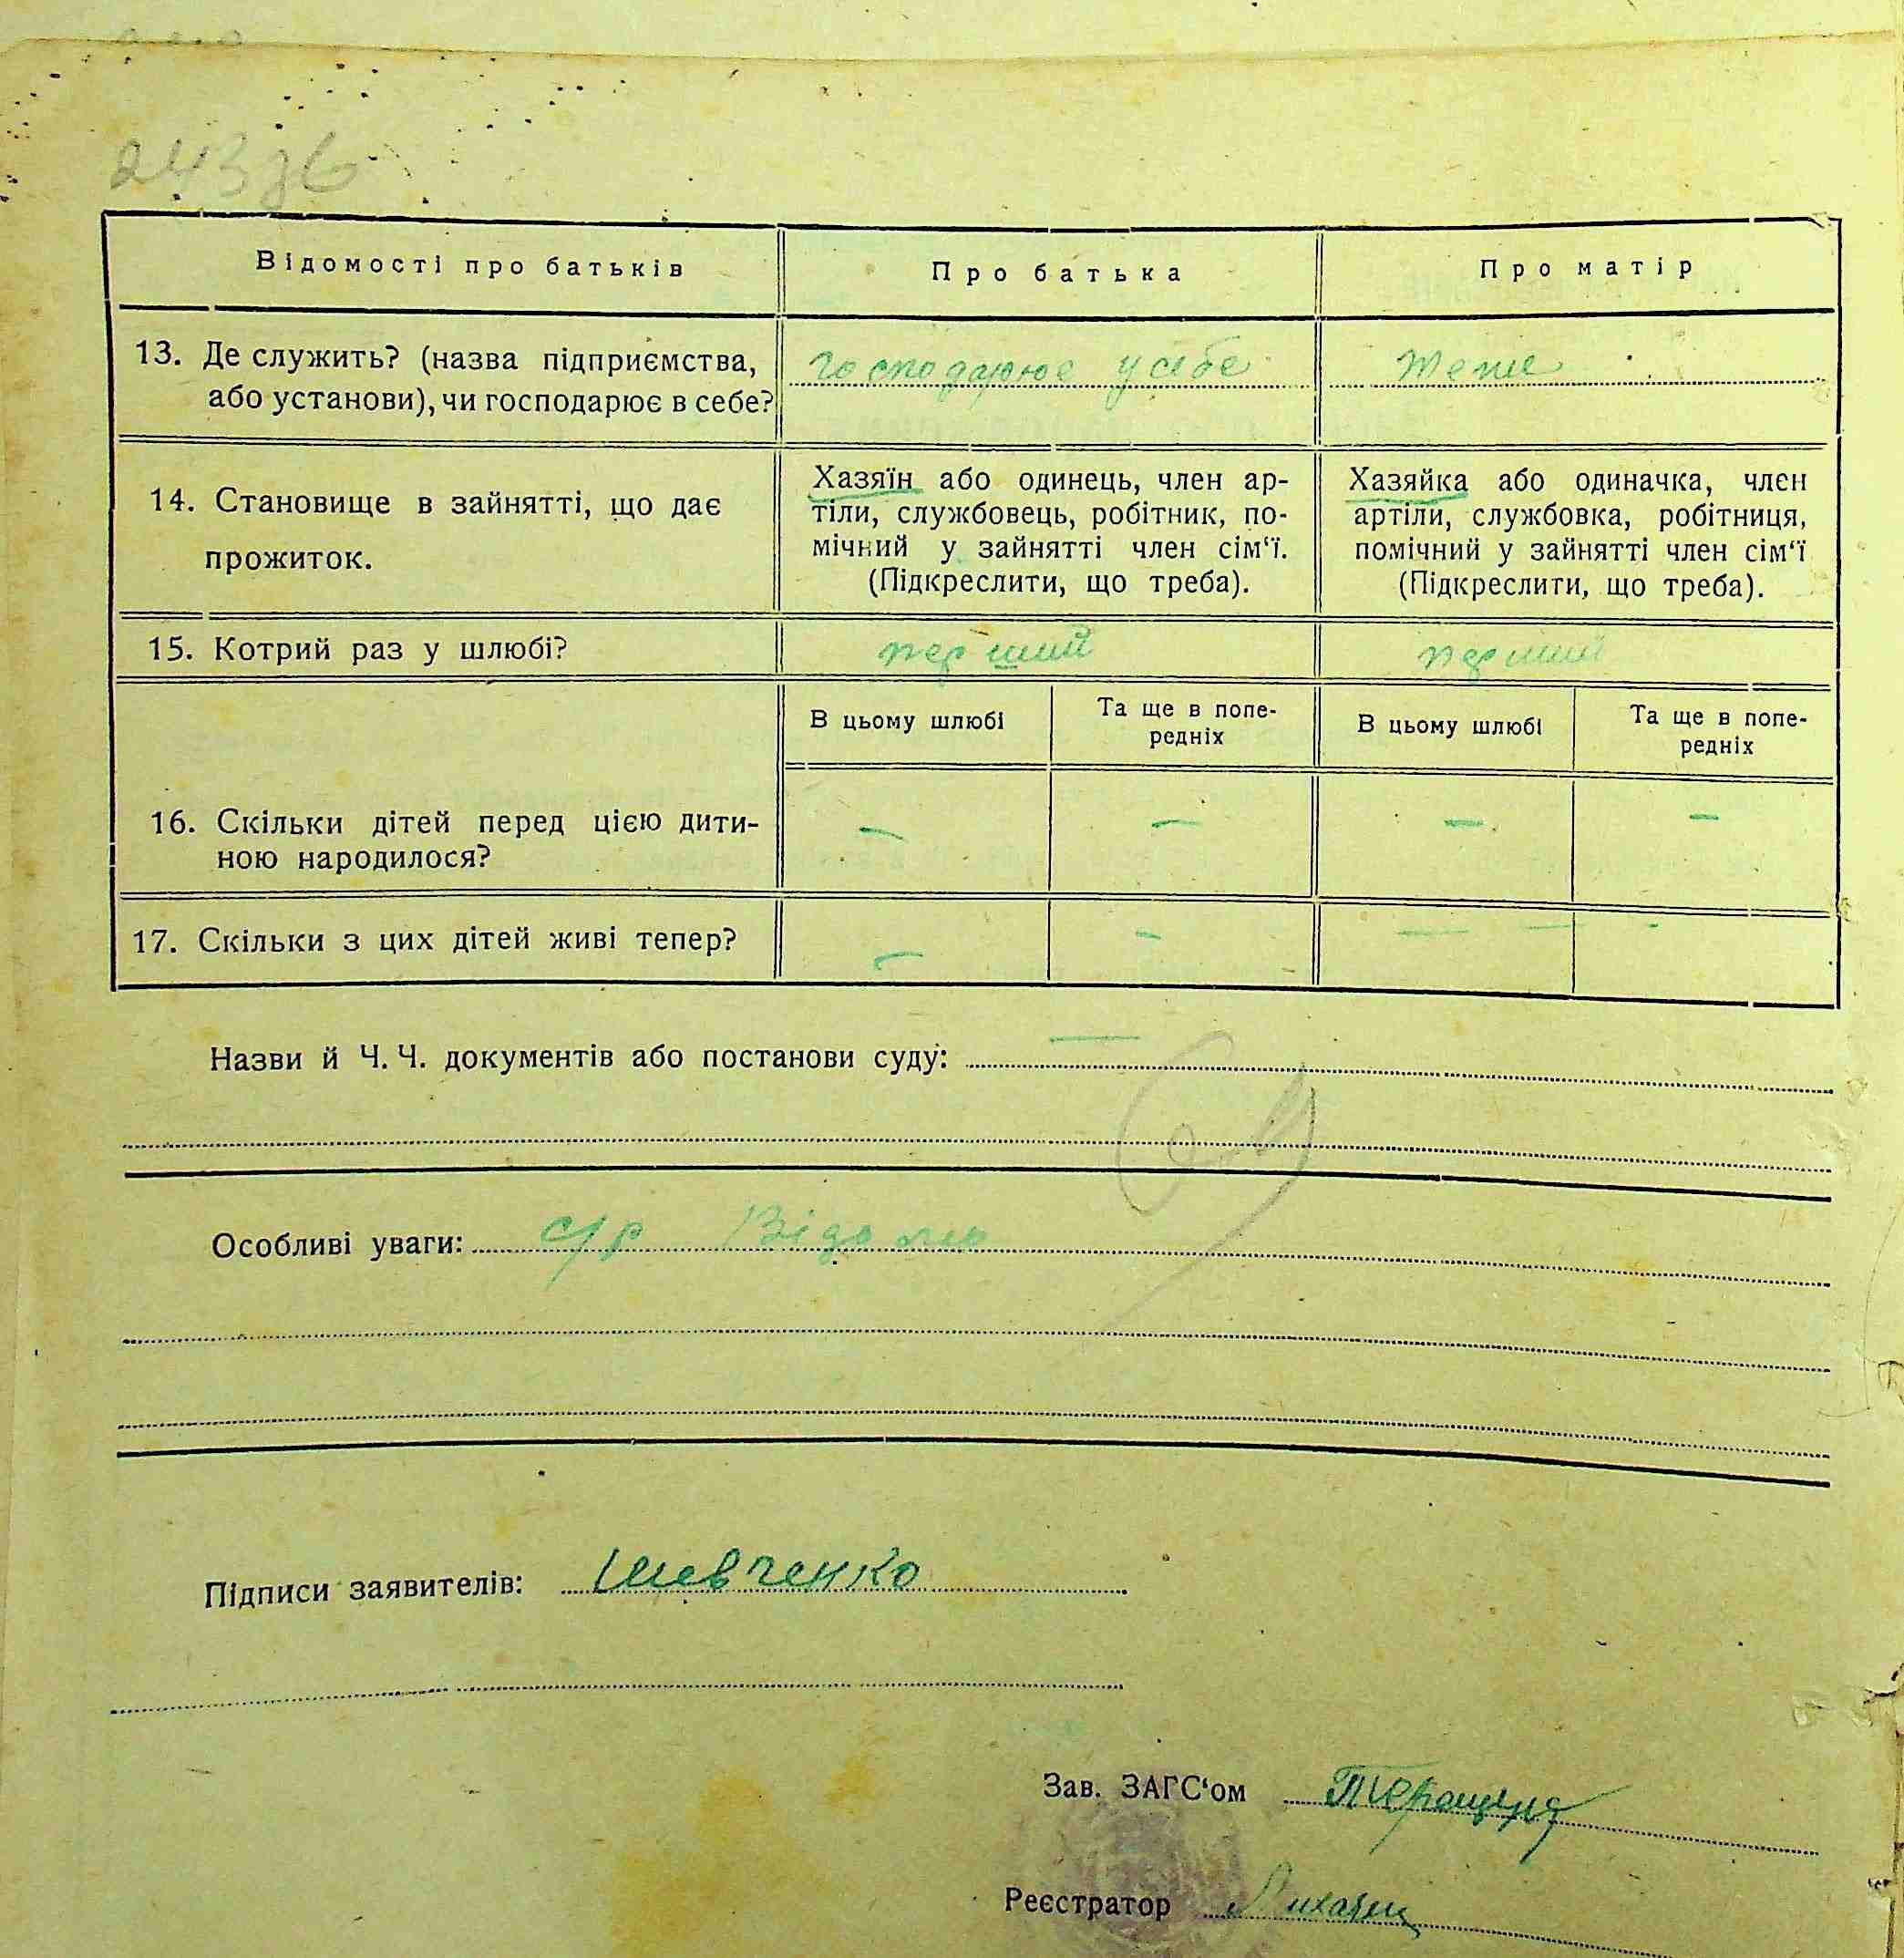 243зб
Відомості про батьків
Про батька
Про матір
13. Де служить? (назва підприємства,
або установи), чи господарює в себе?
господарює у себе
теше
14. Становище в зайнятті, що дає
прожиток.
Хазяїн або одинець, член ар-
тіли, службовець, робітник, по-
мічний у зайнятті член сім‘ї.
(Підкреслити, що треба).
Хазяйка або одиначка, член
артіли, службовка, робітниця,
помічний у зайнятті член сім‘ї
(Підкреслити, що треба).
15. Котрий раз у шлюбі?
перший
перший
В цьому шлюбі
Та ще в попе-
редніх
В цьому шлюбі
Та ще в попе-
редніх
16. Скільки дітей перед цією дити-
ною народилося?
— — — —
17. Скільки з цих дітей живі тепер?
— — — —
Назви й Ч. Ч. документів або постанови суду: —
Особливі уваги: с/р Відомо
Підписи заявителів: Шевченко
Зав. ЗАГС‘ом
Реєстратор